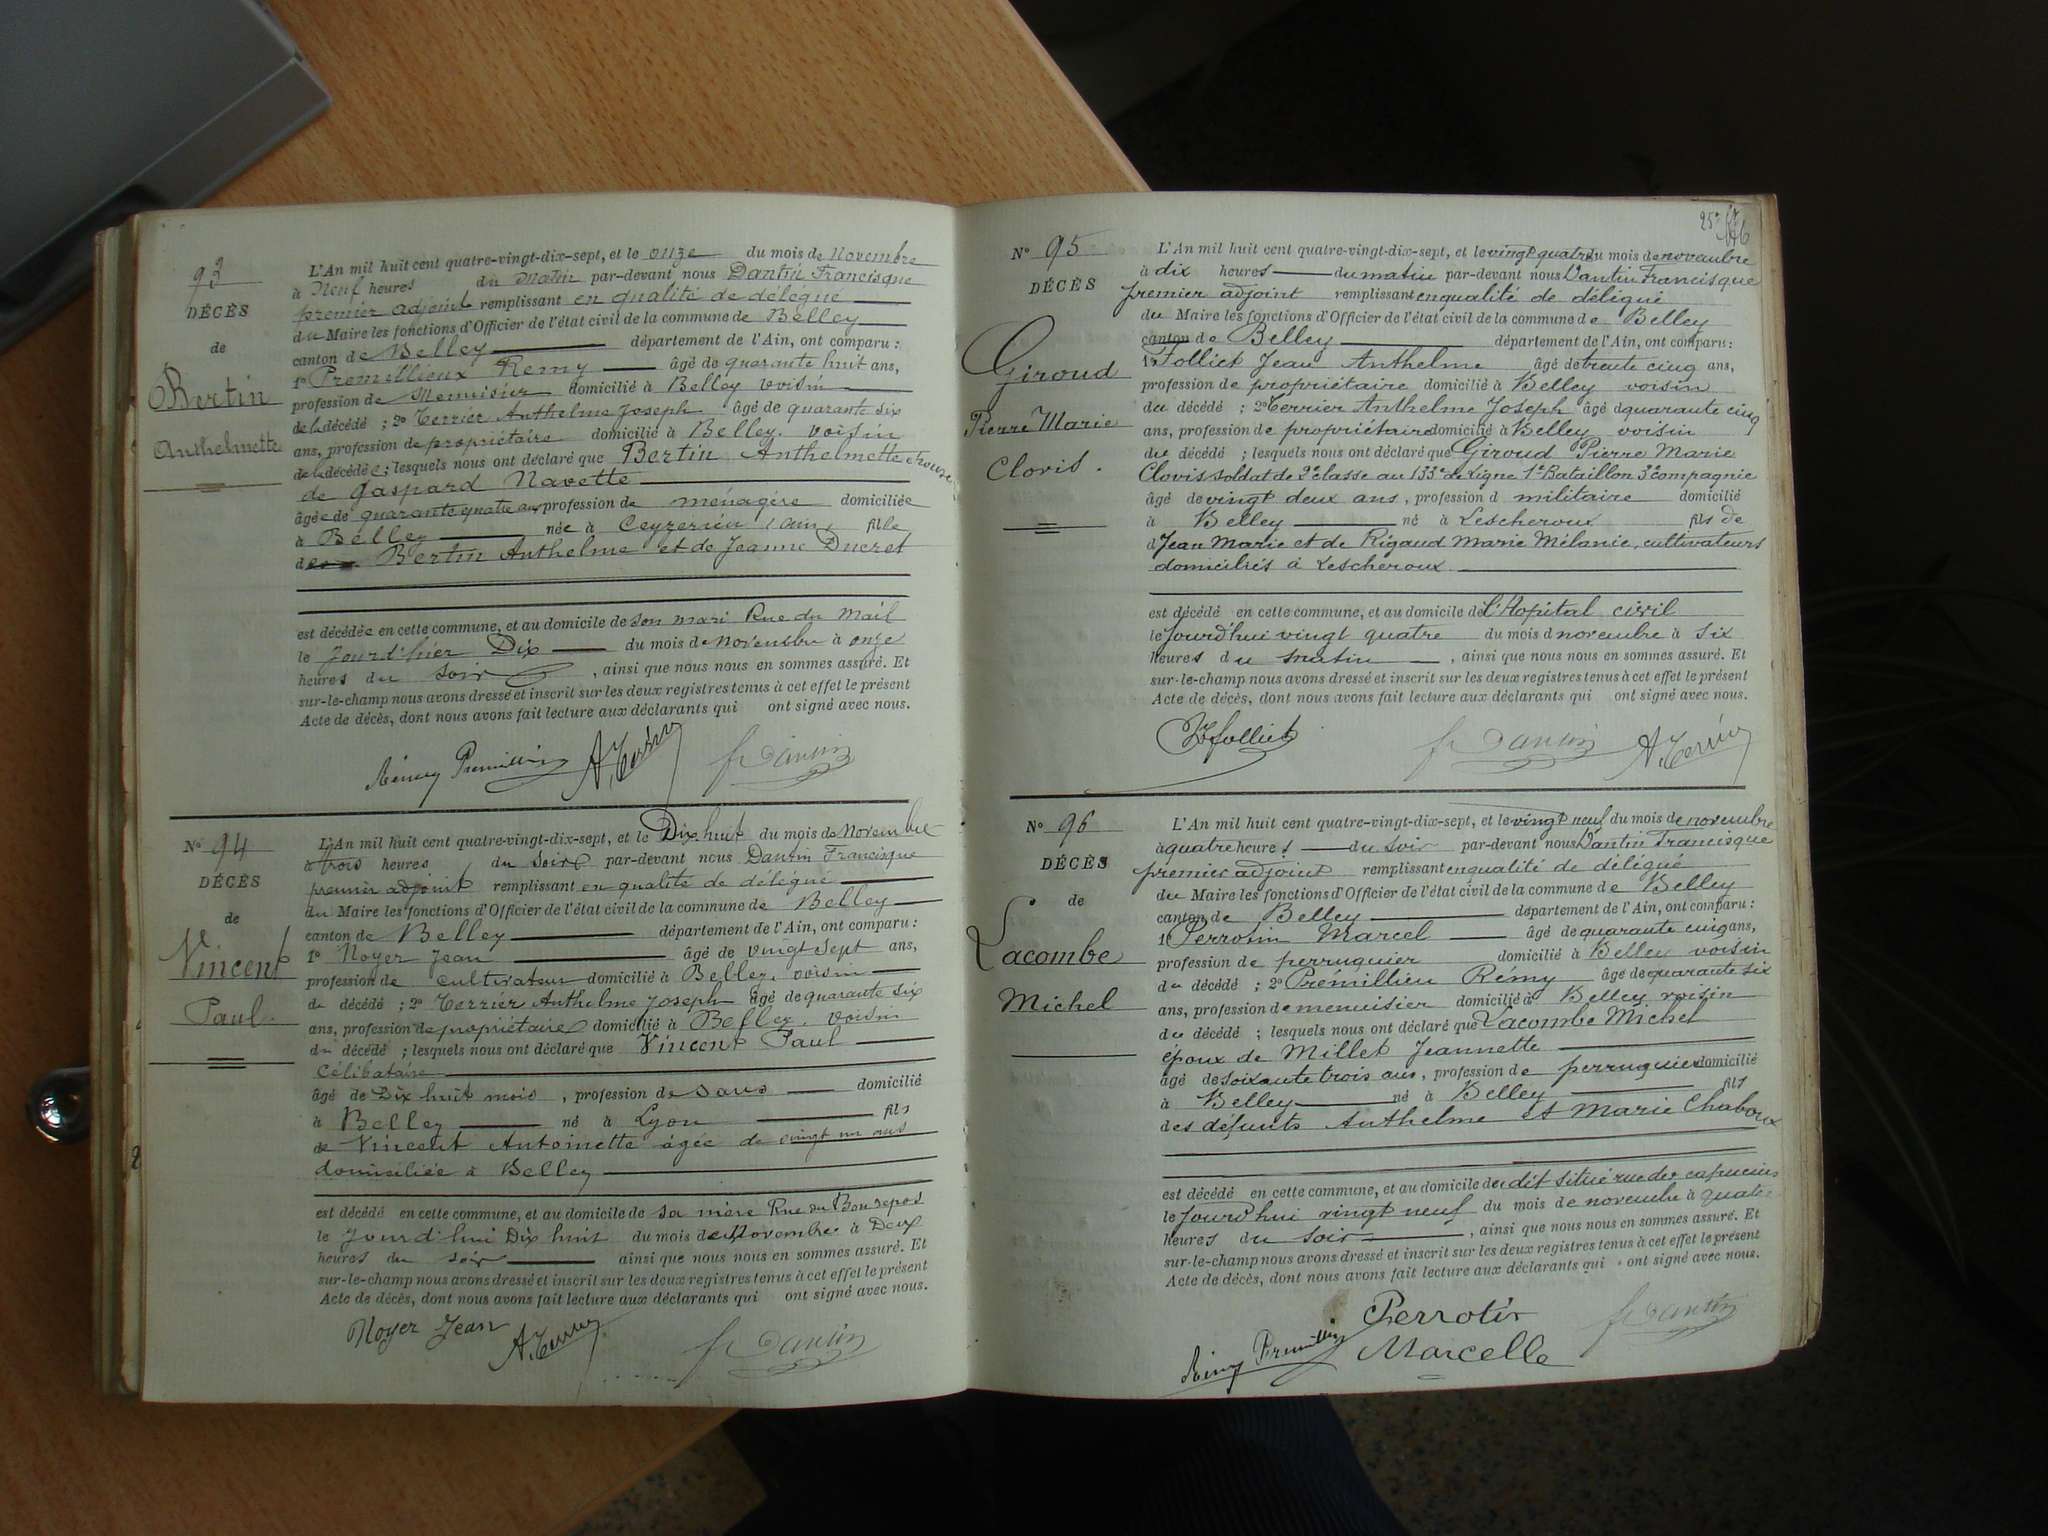 93
DÉCÈS
de
Bertin
Anthelmette
L'An mil huit cent quatre-vingt-dix-sept, et le onze du mois de Novembre
à Neuf heures du matin par-devant nous Dantin Francisque
premier adjoint remplissant en qualité de délégué
du Maire les fonctions d'Officier de l'état civil de la commune de Belley
canton de Belley département de l'Ain, ont comparu :
1º Premellieux Remy âgé de quarante huit ans,
profession de Menuisier domicilié à Belley voisin
de la décédé ; 2º Terrier Anthelme Joseph âgé de quarante six
ans, profession de propriétaire domicilié à Belley. voisin
de la décédée ; lesquels nous ont déclaré que Bertin Anthelmette épouse
de Gaspard Navette
âgée de quarante quatre ans profession de ménagère domiciliée
à Belley née à Ceyzerieu (ain) fille
de Bertin Anthelme et de Jeanne Ducret
est décédée en cette commune, et au domicile de son mari Rue du Mail
le Jourd'hier Dix du mois de Novembre à onze
heures du soir , ainsi que nous nous en sommes assuré. Et
sur-le-champ nous avons dressé et inscrit sur les deux registres tenus à cet effet le présent
Acte de décès, dont nous avons fait lecture aux déclarants qui ont signé avec nous.
A. Terrier fr Dantin
Nº 94
DÉCÈS
de
Vincent
Paul.
L'An mil huit cent quatre-vingt-dix-sept, et le Dix huit du mois de Novembre
à trois heures du soir par-devant nous Dantin Francisque
premier adjoint remplissant en qualité de délégué
du Maire les fonctions d'Officier de l'état civil de la commune de Belley
canton de Belley département de l'Ain, ont comparu :
1º Noyer Jean âgé de vingt sept ans,
profession de cultivateur domicilié à Belley, voisin
du décédé ; 2º Terrier Anthelme Joseph âgé de quarante six
ans, profession de propriétaire domicilié à Belley. voisin
du décédé ; lesquels nous ont déclaré que Vincent Paul
Célibataire
âgé de Dix huit mois , profession de sans domicilié
à Belley né à Lyon fils
de Vincent Antoinette agée de vingt un ans
domiciliée à Belley
est décédé en cette commune, et au domicile de sa mère Rue du Bon repos
le Jourd'hui Dix huit du mois de Novembre à Deux
heures du soir ainsi que nous nous en sommes assuré. Et
sur-le-champ nous avons dressé et inscrit sur les deux registres tenus à cet effet le présent
Acte de décès, dont nous avons fait lecture aux déclarants qui ont signé avec nous.
Noyer Jean A. Terrier fr Dantin
Nº 95
DÉCÈS
Giroud
Pierre Marie
Clovis.
L'An mil huit cent quatre-vingt-dix-sept, et le vingt quatre du mois de novembre
à dix heures du matin par-devant nous Dantin Francisque
premier adjoint remplissant en qualité de délégué
du Maire les fonctions d'Officier de l'état civil de la commune de Belley
canton de Belley département de l'Ain, ont comparu :
1º Folliet Jean Anthelme âgé de trente cinq ans,
profession de propriétaire domicilié à Belley voisin
du décédé ; 2º Terrier Anthelme Joseph âgé d quarante cinq
ans, profession de propriétaire domicilié à Belley voisin
du décédé ; lesquels nous ont déclaré que Giroud Pierre Marie
Clovis soldat de 2e classe au 133e de Ligne 1er Bataillon 3e compagnie
âgé de vingt deux ans , profession d militaire domicilié
à Belley né à Lescheroux fils de
d Jean Marie et de Rigaud Marie Mélanie, cultivateurs
domiciliés à Lescheroux
est décédé en cette commune, et au domicile de l'Hopital civil
le Jourd'hui vingt quatre du mois d novembre à six
heures du matin , ainsi que nous nous en sommes assuré. Et
sur-le-champ nous avons dressé et inscrit sur les deux registres tenus à cet effet le présent
Acte de décès, dont nous avons fait lecture aux déclarants qui ont signé avec nous.
folliet fr Dantin A. Terrier
Nº 96
DÉCÈS
de
Lacombe
Michel
L'An mil huit cent quatre-vingt-dix-sept, et le vingt neuf du mois de novembre
à quatre heures du soir par-devant nous Dantin Francisque
premier adjoint remplissant en qualité de délégué
du Maire les fonctions d'Officier de l'état civil de la commune de Belley
canton de Belley département de l'Ain, ont comparu :
1 Perrotin Marcel âgé de quarante cinq ans,
profession de perruquier domicilié à Belley voisin
du décédé ; 2º Prémillieu Rémy âgé de quarante six
ans, profession de menuisier domicilié à Belley voisin
du décédé ; lesquels nous ont déclaré que Lacombe Michel
époux de Millet Jeannette
âgé de soixante trois ans, profession de perruquier domicilié
à Belley né à Belley fils
des défunts Anthelme et Marie Chaboux
est décédé en cette commune, et au domicile du dit situé rue des capucins
le Jourd'hui vingt neuf du mois de novembre à quatre
heures du soir , ainsi que nous nous en sommes assuré. Et
sur-le-champ nous avons dressé et inscrit sur les deux registres tenus à cet effet le présent
Acte de décès, dont nous avons fait lecture aux déclarants qui ont signé avec nous.
Perrotin fr Dantin
Marcelle